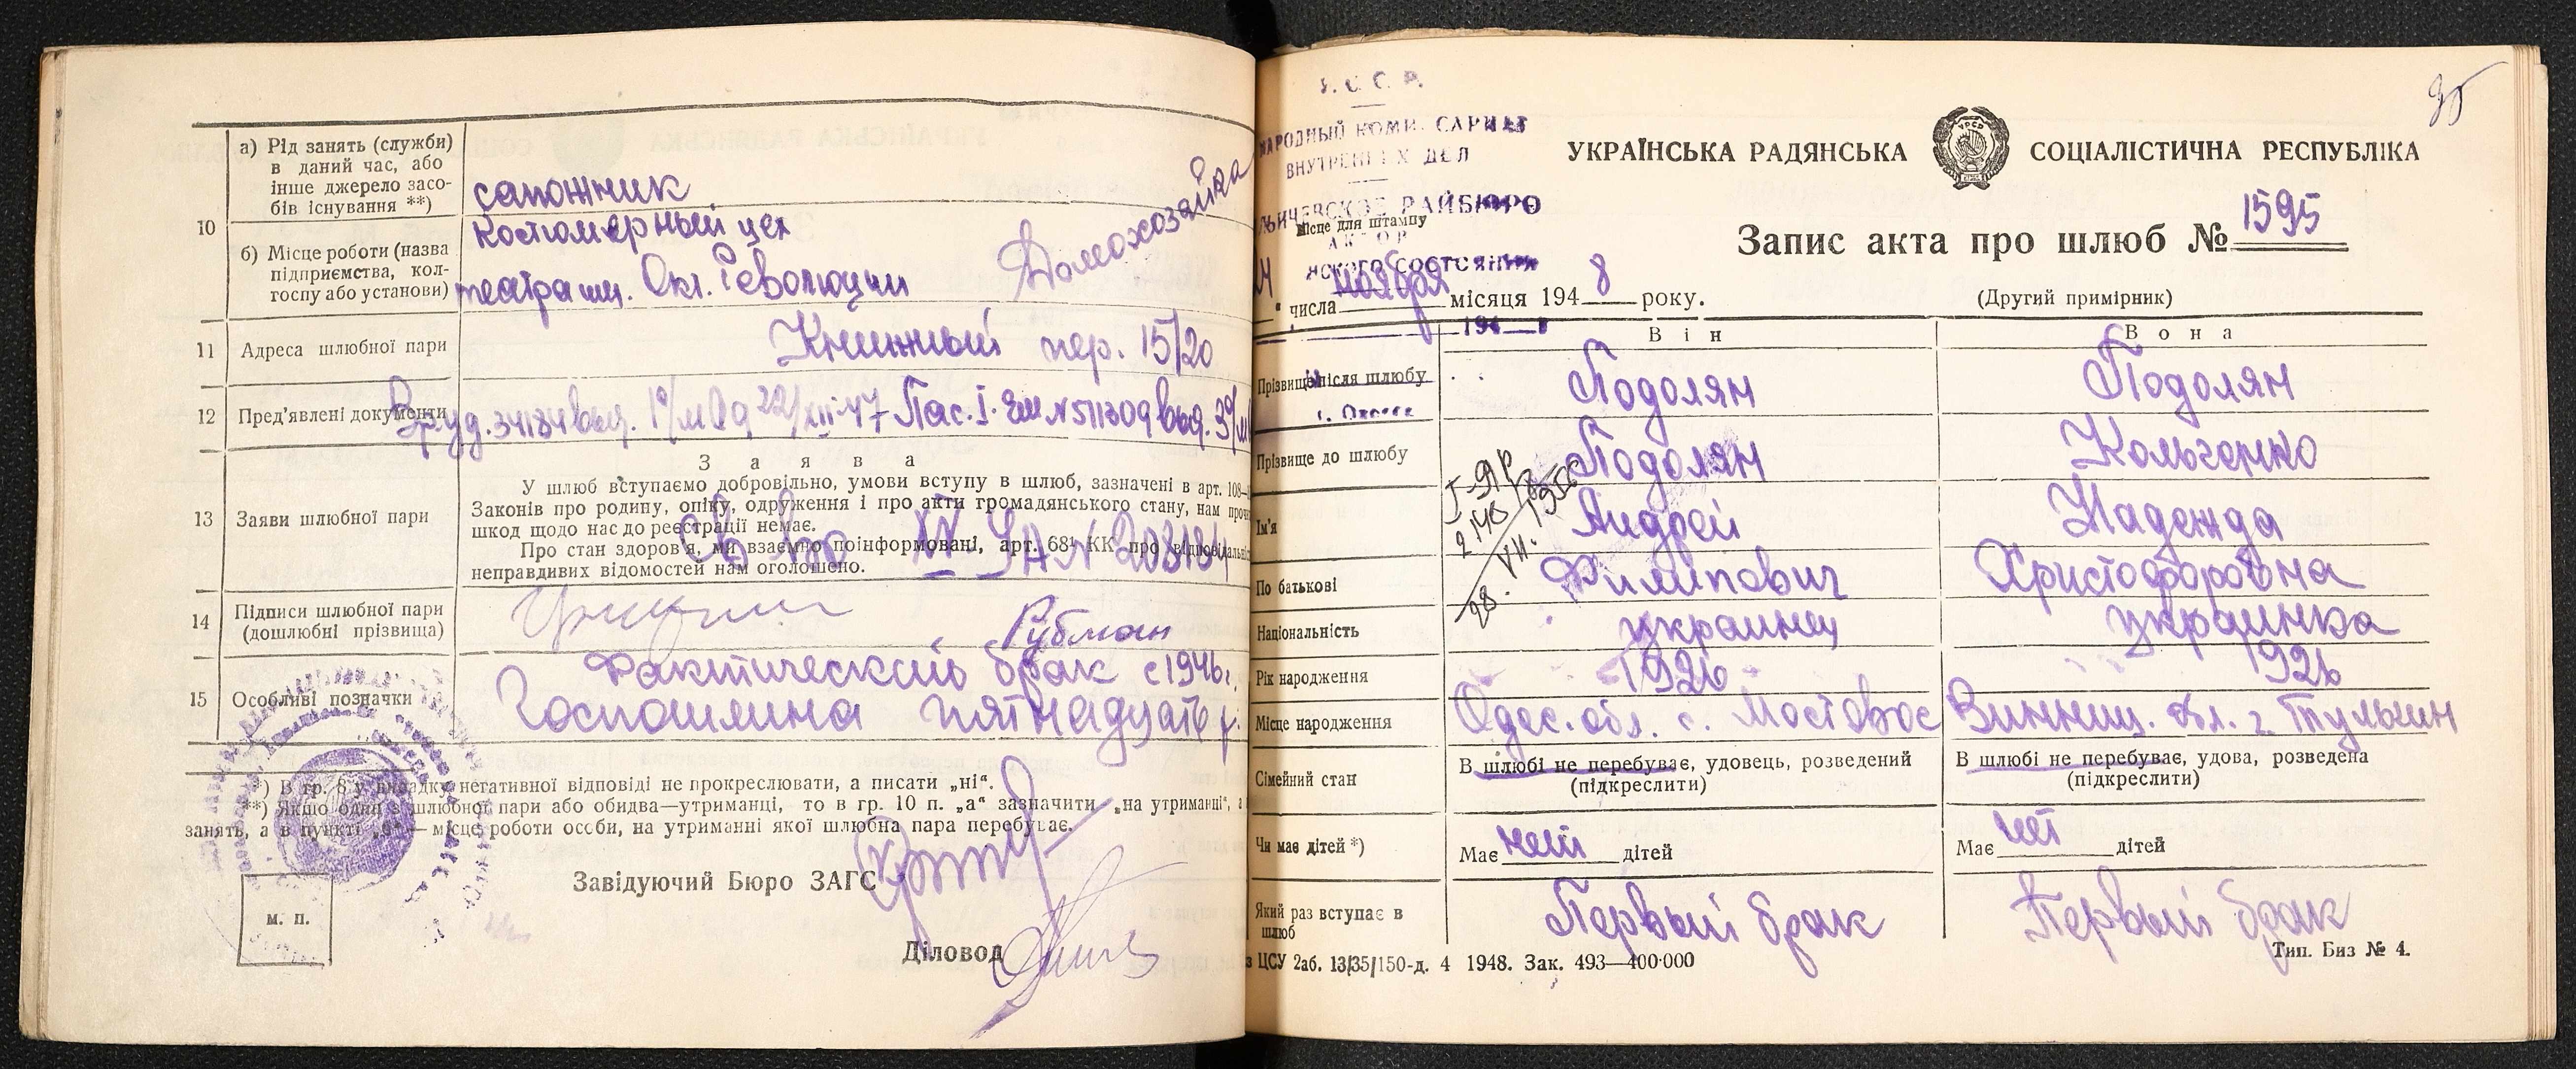 а) Рід занять (служби)
в даний час, або
інше джерело засо-
бів існування **)
сапожник
10
б) Місце роботи (назва
підприємства, кол-
госпу або установи)
костюмерный цех
театра им. Окт. Революции
Домохозяйка
11 Адреса шлюбної пари
Книжный пер. 15/20
12 Пред'явлені документи
22/XII-47 Пас. I. ЕШ № 511309 выд. 39/м
13 Заяви шлюбної пари
Заява
У шлюб вступаємо добровільно, умови вступу в шлюб, зазначені в арт. 108-
Законів про родину, опіку, одруження і про акти громадянського стану, нам
шкод щодо нас до реєстрації немає.
Про стан здоров'я, ми взаємно поінформовані, арт. 68¹ КК про
неправдивих відомостей нам оголошено.
Св во IV УА № 208184
14 Підписи шлюбної пари
(дошлюбні прізвища)
Рубман
15 Особливі позначки
Фактический брак с 1946 г.
Госпошлина пятнадцать р.
*) В гр. 8 у випадку негативної відповіді не прокреслювати, а писати „ні“.
**) Якщо один з шлюбної пари або обидва—утриманці, то в гр. 10 п. „а“ зазначити „на утриманці“, а
занять, а в пункті „б“ — місце роботи особи, на утриманні якої шлюбна пара перебуває.
Завідуючий Бюро ЗАГС
м. п.
Діловод
95
У. С. С. Р.
НАРОДНЫЙ КОМИССАРИАТ
ВНУТРЕННИХ ДЕЛ
РАЙБЮРО
Місце для штампу
АКТОВ
СОСТОЯНИЯ
УКРАЇНСЬКА РАДЯНСЬКА СОЦІАЛІСТИЧНА РЕСПУБЛІКА
УРСР
Запис акта про шлюб № 1595
24 " числа ноября місяця 1948 року.
(Другий примірник)
194
г. Одесса
Він Вона
Прізвище після шлюбу Подолян Подолян
Прізвище до шлюбу Подолян Кольченко
Ім'я Андрей Надежда
По батькові Филипович Христофоровна
Національність украинец украинка
Рік народження 1926 1926
Місце народження Одес. обл. с. Мостовое Винниц. обл. г. Тульчин
Сімейний стан
В шлюбі не перебуває, удовець, розведений
(підкреслити)
В шлюбі не перебуває, удова, розведена
(підкреслити)
Чи має дітей *) Має нет дітей Має нет дітей
Який раз вступає в
шлюб
Первый брак Первый брак
28. VII. 1956
ЦСУ 2аб. 13/35/150-д. 4 1948. Зак. 493—400·000
Тип. Биз № 4.